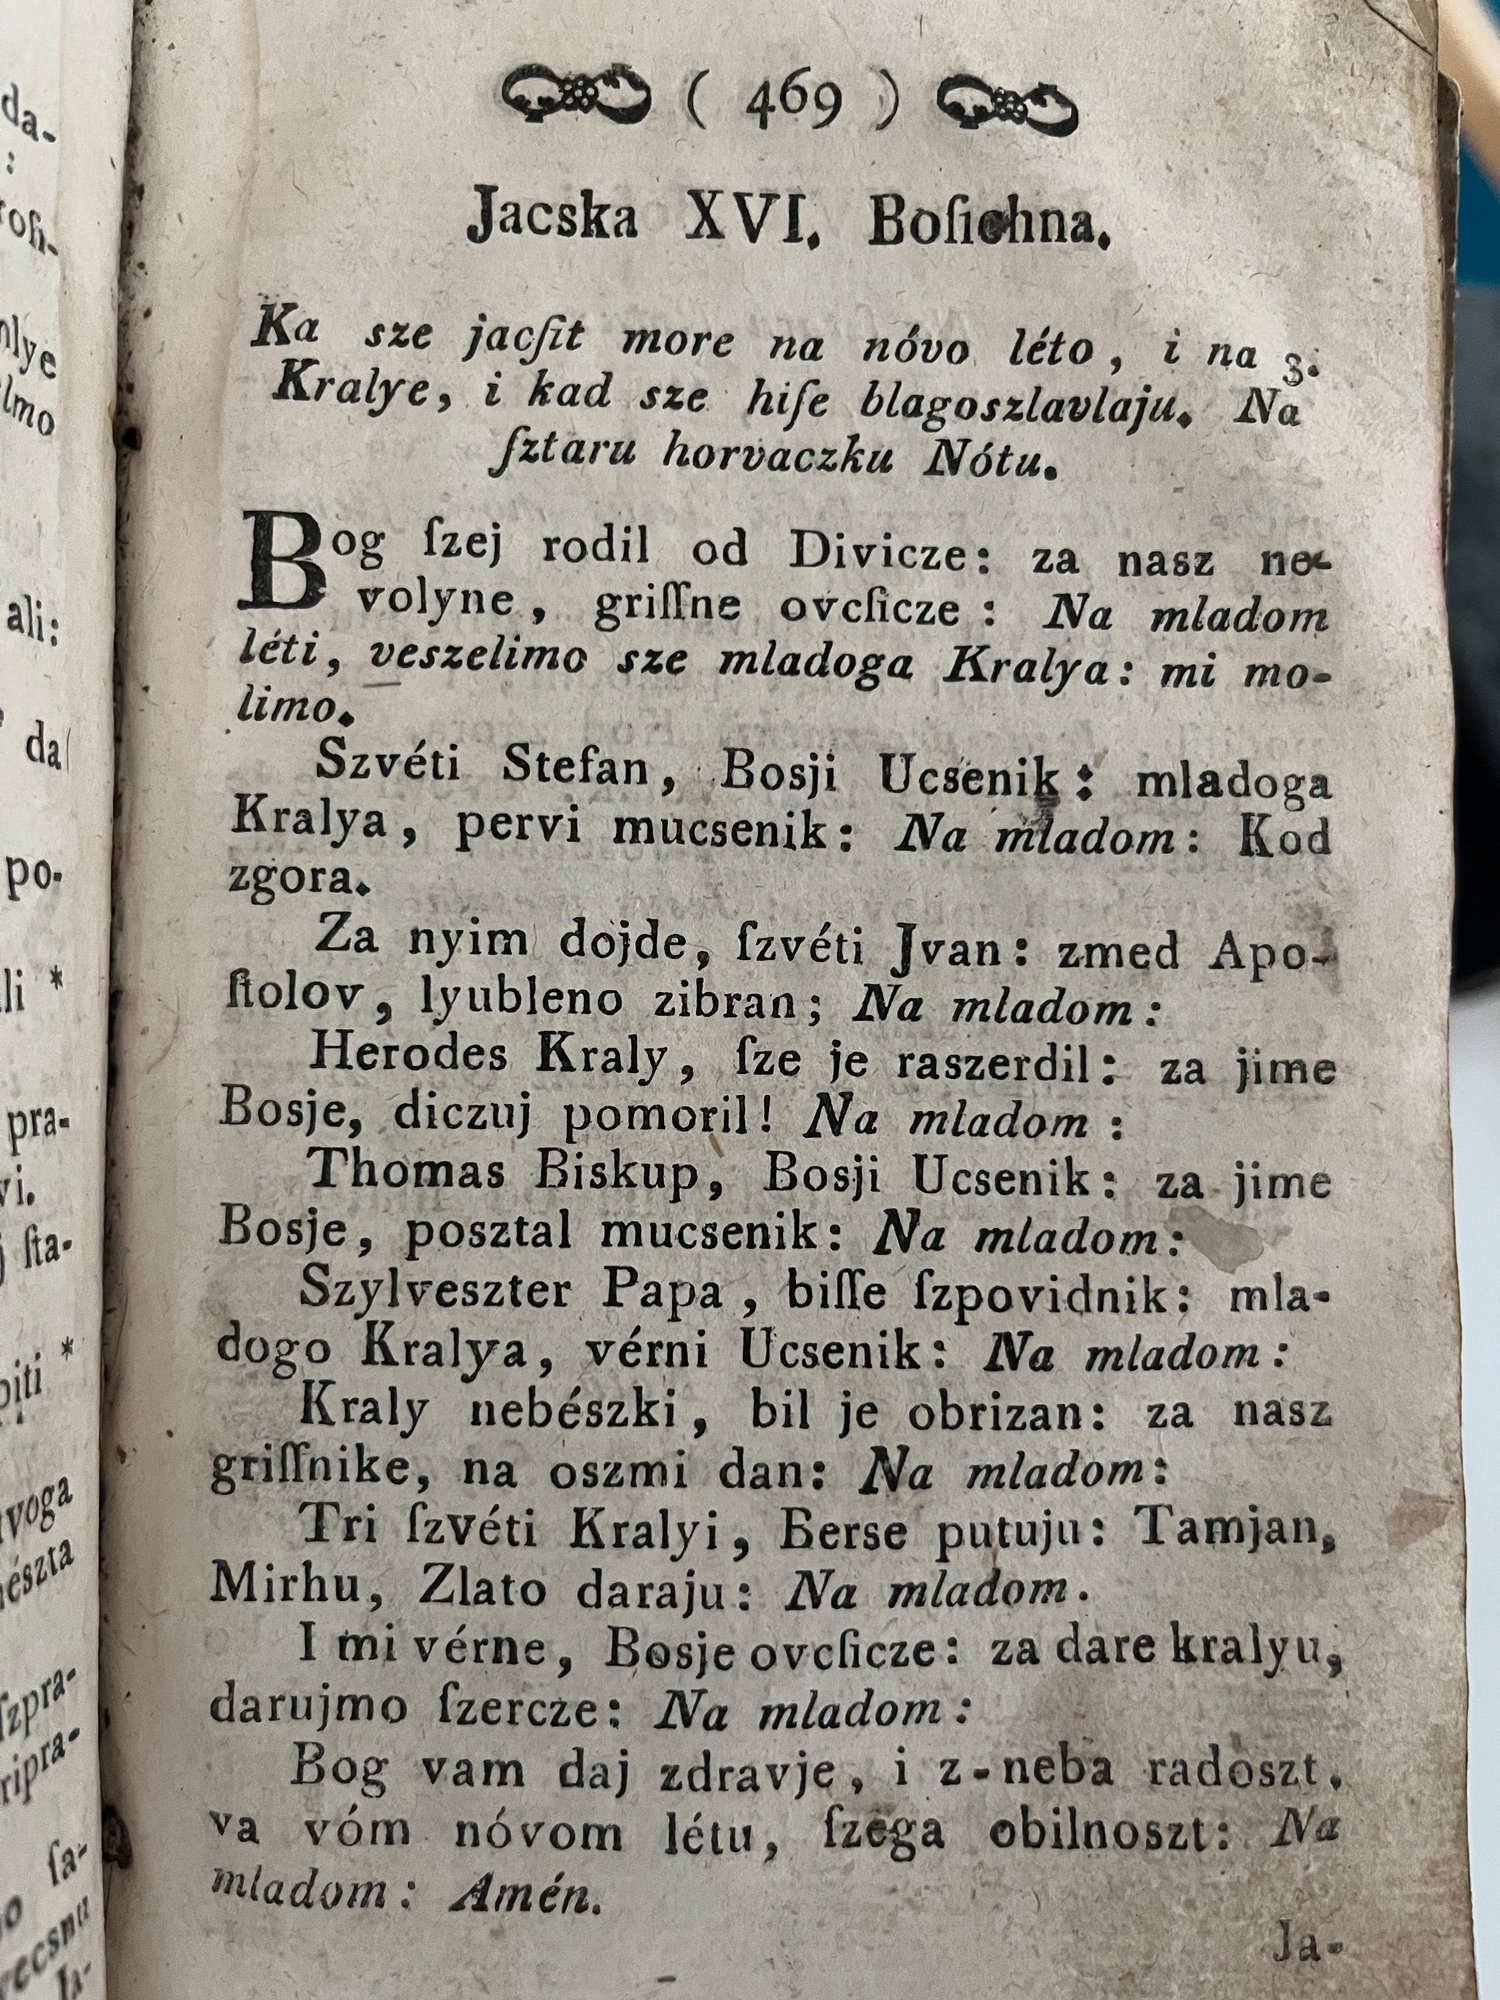 ( 469 )
Jacska XVI. Boſichna.
Ka sze jacſit more na nóvo léto, i na 3.
Kralye, i kad sze hiſe blagoszlavlaju. Na
ſztaru horvaczku Nótu.
Bog ſzej rodil od Divicze: za nasz ne-
volyne, griſſne ovcſicze: Na mladom
léti, veszelimo sze mladoga Kralya: mi mo-
limo.
Szvéti Stefan, Bosji Ucsenik: mladoga
Kralya, pervi mucsenik: Na mladom: Kod
zgora.
Za nyim dojde, ſzvéti Jvan: zmed Apo-
ſtolov, lyubleno zibran; Na mladom:
Herodes Kraly, ſze je raszerdil: za jime
Bosje, diczuj pomoril! Na mladom:
Thomas Biskup, Bosji Ucsenik: za jime
Bosje, posztal mucsenik: Na mladom:
Szylveszter Papa, biſſe ſzpovidnik: mla-
dogo Kralya, vérni Ucsenik: Na mladom:
Kraly nebészki, bil je obrizan: za nasz
griſſnike, na oszmi dan: Na mladom:
Tri ſzvéti Kralyi, Berse putuju: Tamjan,
Mirhu, Zlato daraju: Na mladom.
I mi vérne, Bosje ovcſicze: za dare kralyu,
darujmo ſzercze: Na mladom:
Bog vam daj zdravje, i z-neba radoszt,
va vóm nóvom létu, ſzega obilnoszt: Na
mladom: Amén.
Ja-